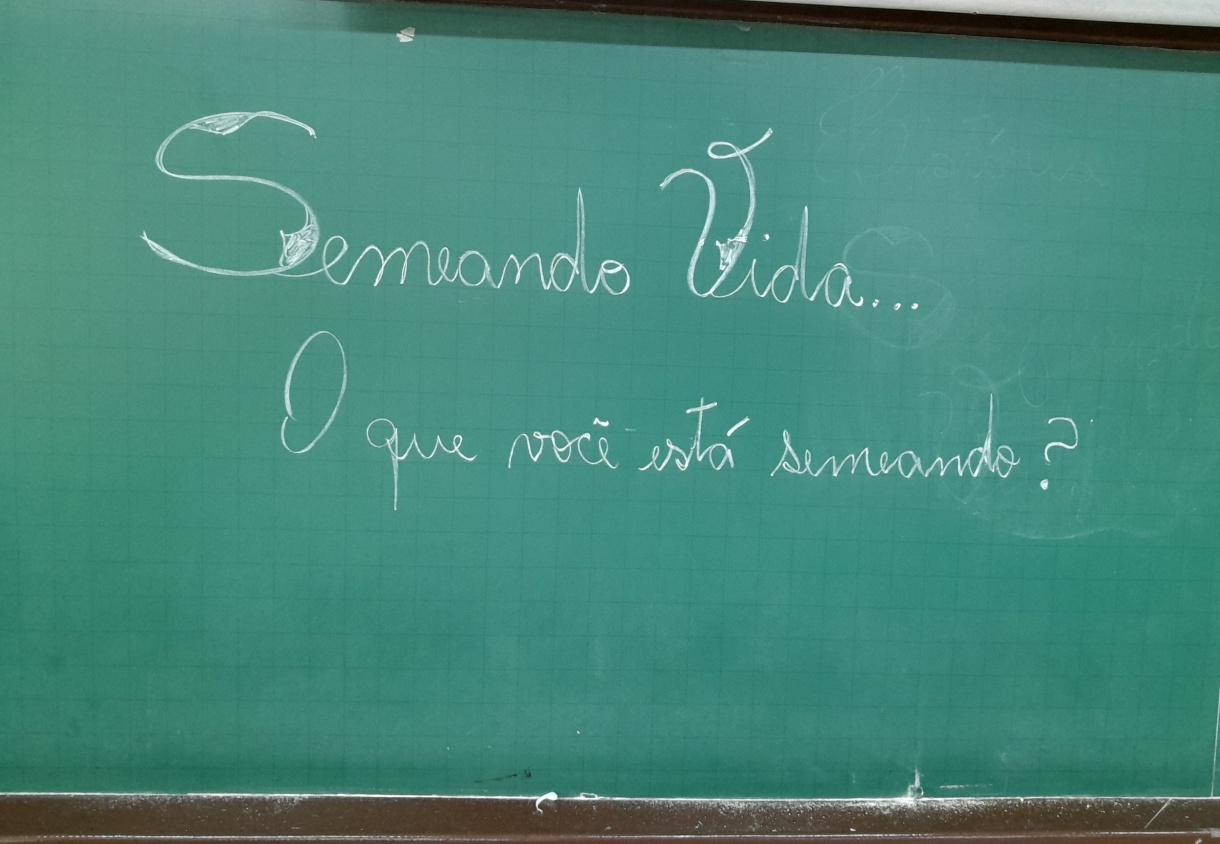 Semeando Vida...
O que você está semeando?